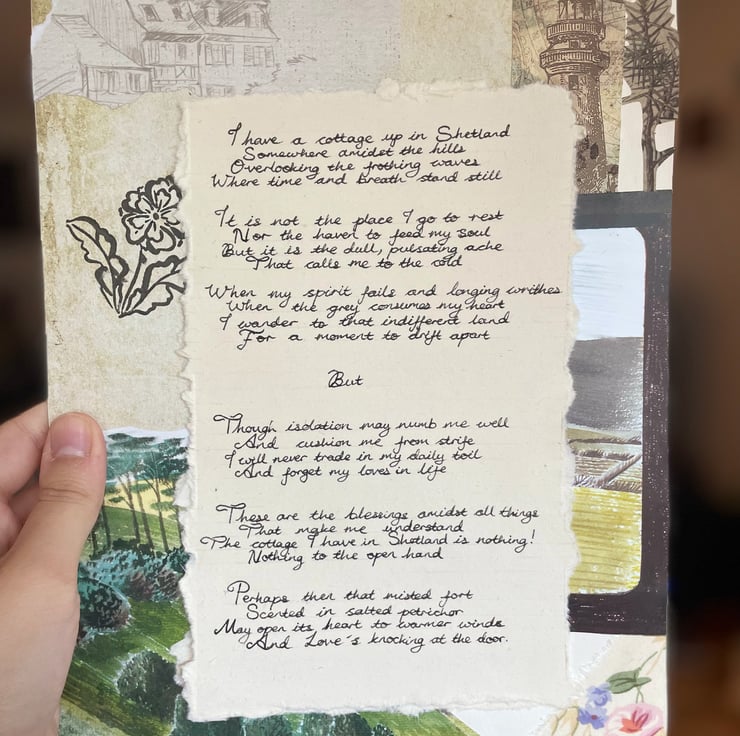 I have a cottage up in Shetland
Somewhere amidst the hills
Overlooking the frothing waves
Where time and breath stand still
It is not the place I go to rest
Nor the haven to feed my soul
But it is the dull, pulsating ache
That calls me to the cold
When my spirit fails and longing writhes
When the grey consumes my heart
I wander to that indifferent land
For a moment to drift apart
But
Though isolation may numb me well
And cushion me from strife
I will never trade in my daily toil
And forget my loves in life
These are the blessings amidst all things
That make me understand
The cottage I have in Shetland is nothing!
Nothing to the open hand
Perhaps then that misted fort
Scented in salted petrichor
May open its heart to warmer winds
And Love's knocking at the door.